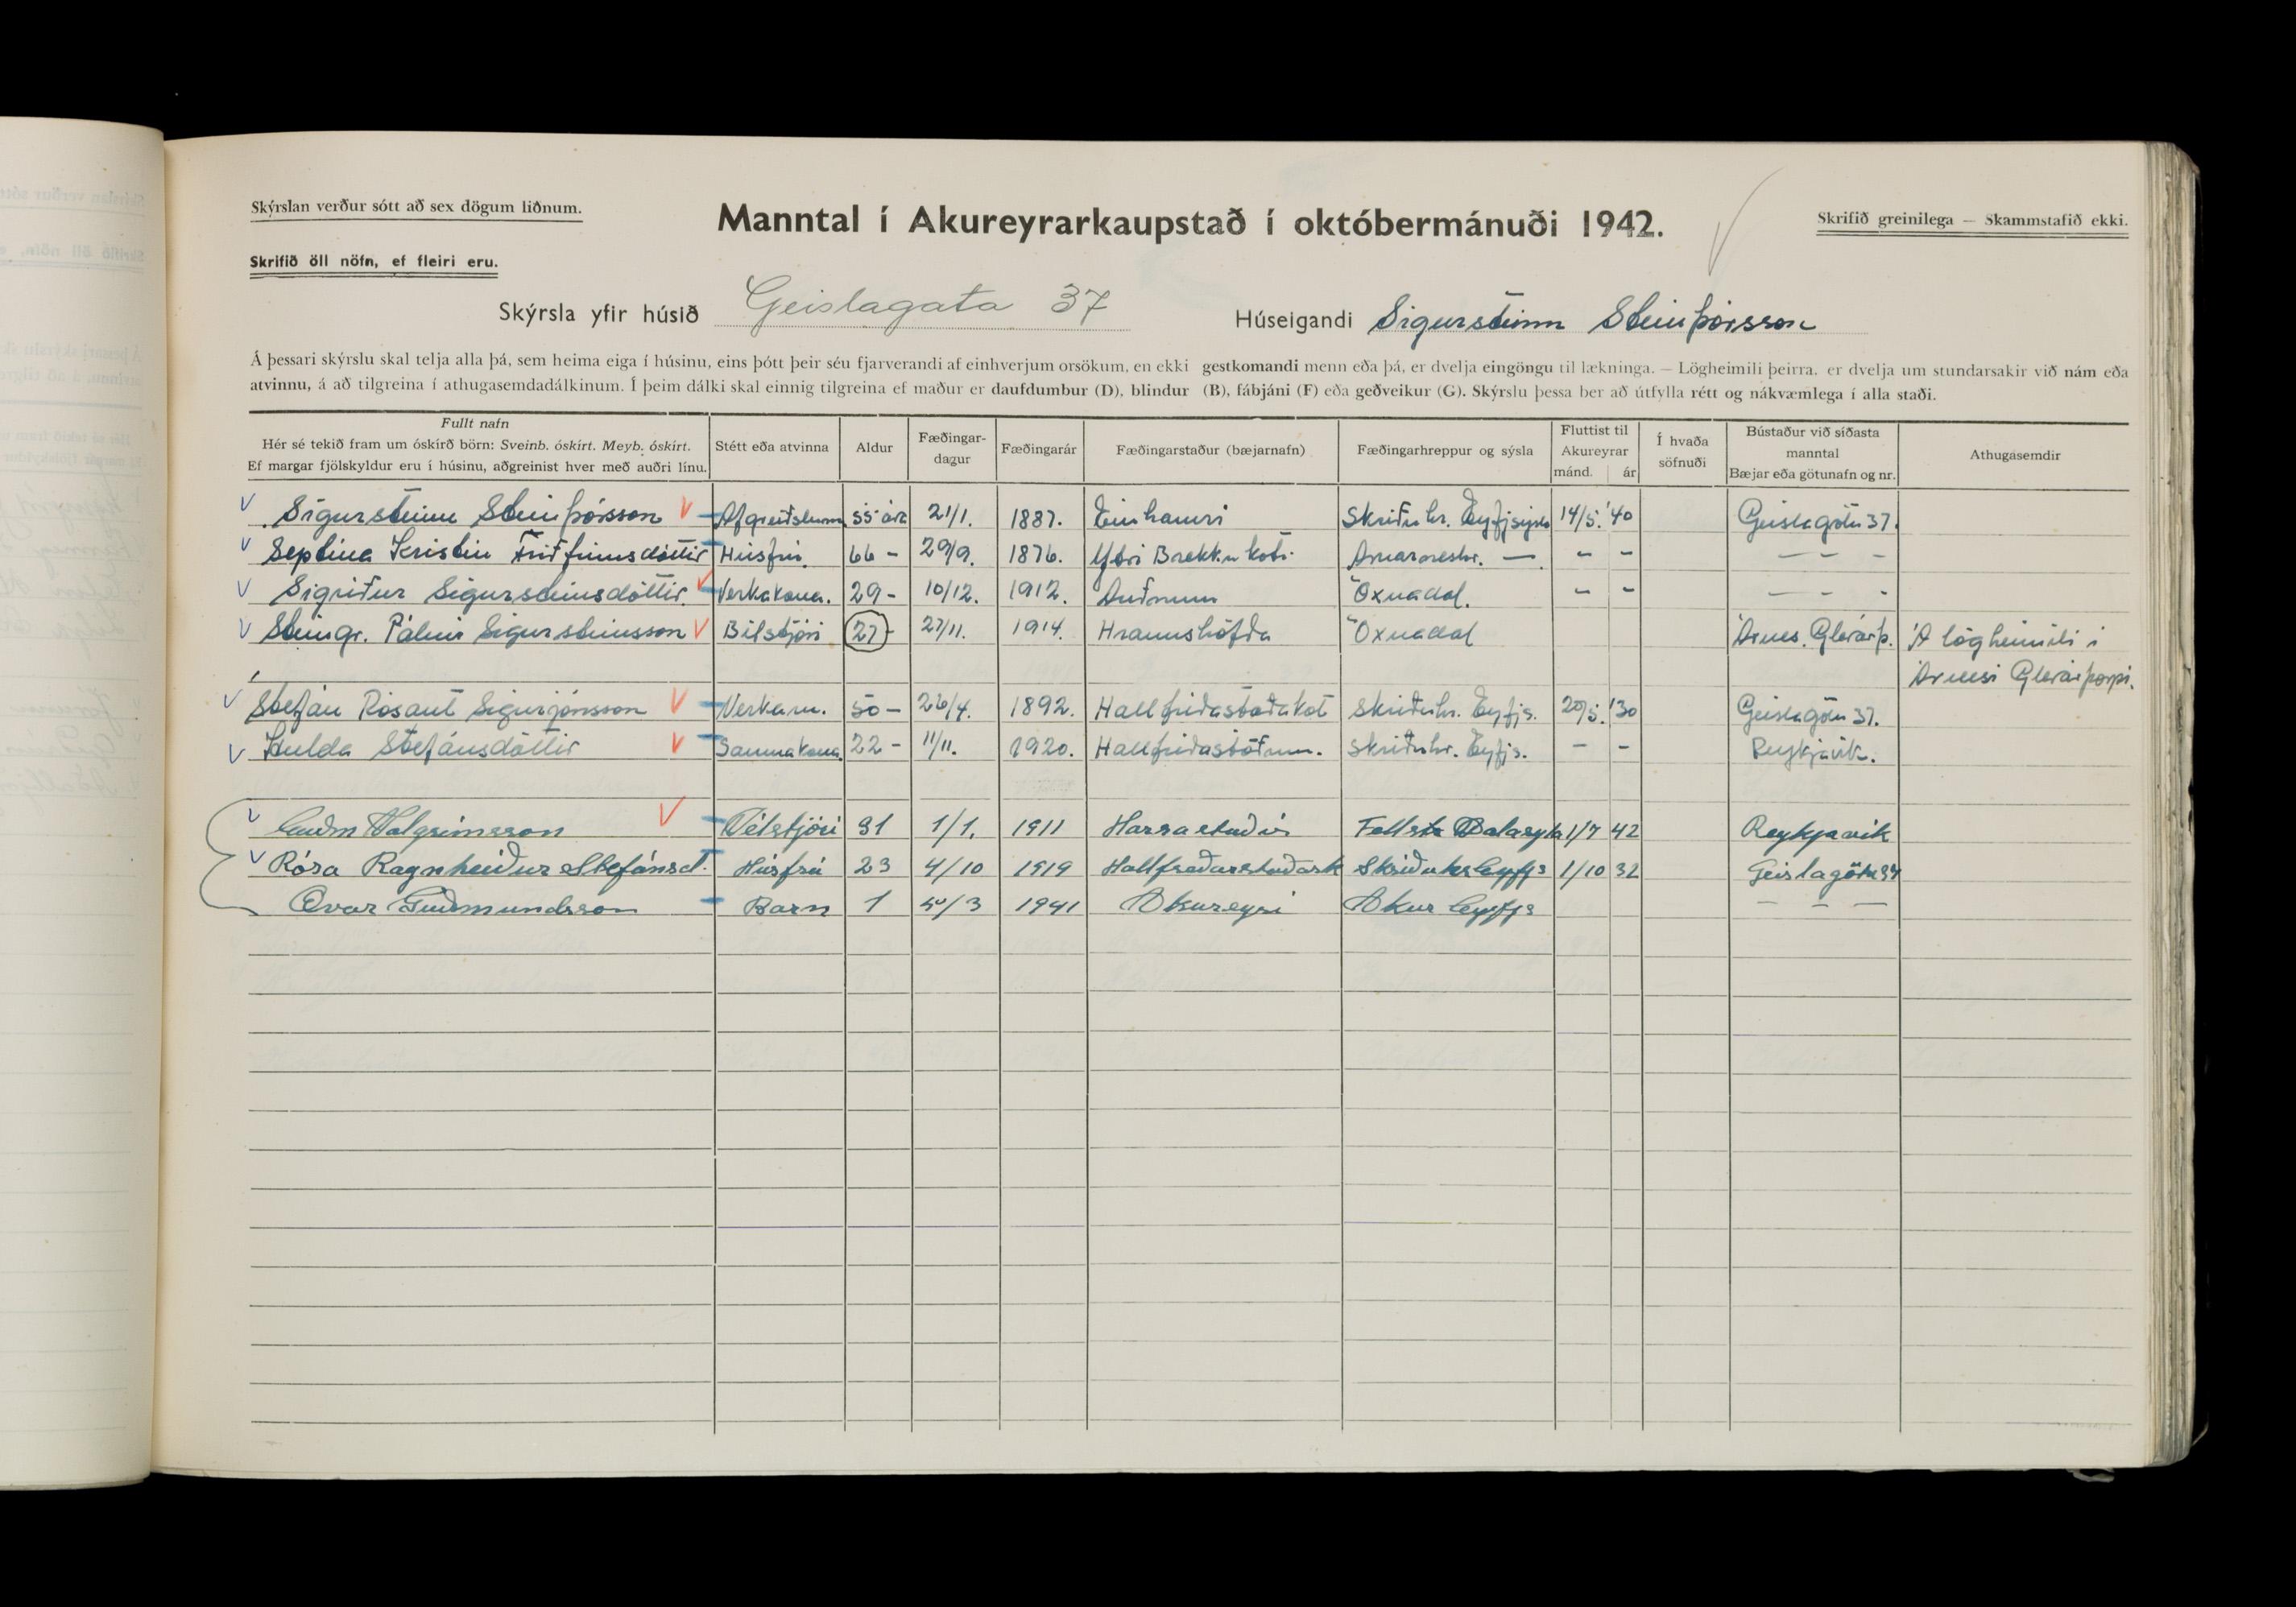 Skýrslan verður sótt að sex dögum liðnum.
Manntal í Akureyrarkaupstað í októbermánuði 1942.
Skrifið greinilega — Skammstafið ekki.
Skrifið öll nöfn, ef fleiri eru.
Skýrsla yfir húsið Geislagata 37
Húseigandi Sigursteinn Steinþórsson
Á þessari skýrslu skal telja alla þá, sem heima eiga í húsinu, eins þótt þeir séu fjarverandi af einhverjum orsökum, en ekki gestkomandi menn eða þá, er dvelja eingöngu til lækninga. — Lögheimili þeirra, er dvelja um stundarsakir við nám eða
atvinnu, á að tilgreina í athugasemdadálkinum. Í þeim dálki skal einnig tilgreina ef maður er daufdumbur (D), blindur (B), fábjáni (F) eða geðveikur (G). Skýrslu þessa ber að útfylla rétt og nákvæmlega í alla staði.
Fullt nafn
Hér sé tekið fram um óskírð börn: Sveinb. óskírt. Meyb. óskírt.
Ef margar fjölskyldur eru í húsinu, aðgreinist hver með auðri línu.
Stétt eða atvinna
Aldur
Fæðingar-
dagur
Fæðingarár
Fæðingarstaður (bæjarnafn)
Fæðingarhreppur og sýsla
Fluttist til
Akureyrar
mánd. ár
Í hvaða
söfnuði
Bústaður við síðasta
manntal
Bæjar eða götunafn og nr.
Athugasemdir
Sigursteinn Steinþórsson Afgreiðslum. 55 ára 21/1. 1887. Einhamri Skriðuhr. Eyfjsýslu 14/5. '40 Geislagötu 37.
Septína Kristín Friðfinnsdóttir Húsfrú. 66 - 29/9. 1876. Ytri Brekkukoti. Arnarneshr. — - - — - -
Sigríður Sigursteinsdóttir. Verkakona. 29 - 10/12. 1912. Auðnum Öxnadal. - - — - -
Steingr. Pálmi Sigursteinsson Bílstjóri 27 - 27/11. 1914. Hraunshöfða Öxnadal Árnes. Glerárþ. Á lögheimili í
Árnesi Glerárþorpi.
Stefán Rósant Sigurjónsson Verkam. 50 - 26/4. 1892. Hallfríðastaðakot Skriðuhr. Eyfjs. 20/5. '30 Geislagötu 37.
Hulda Stefánsdóttir Saumakona. 22 - 11/11. 1920. Hallfríðastöðum. Skriðuhr. Eyfjs. - - Reykjavík.
Guðm Halgrímsson Vélstjóri 31 1/1. 1911 Harrastaðir Fellstr Dalasýsla 1/7 42 Reykjavik
Rósa Ragnheiður Stefánsd. Húsfrú 23 4/10 1919 Hallfreðarstaðark Skriðuhr Eyfjs 1/10 32 Geislagötu 37
Ævar Guðmundsson Barn 1 /3 1941 Akureyri Akur Eyfjs — - —